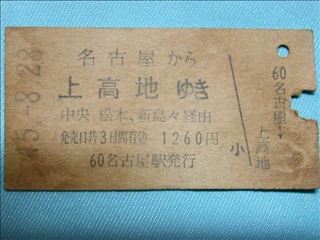 45.-8.28
名古屋から
上高地ゆき
中央、松本、新島々経由
発売日共3日間有効 1260円
60名古屋駅発行
小
60
名古屋→上高地